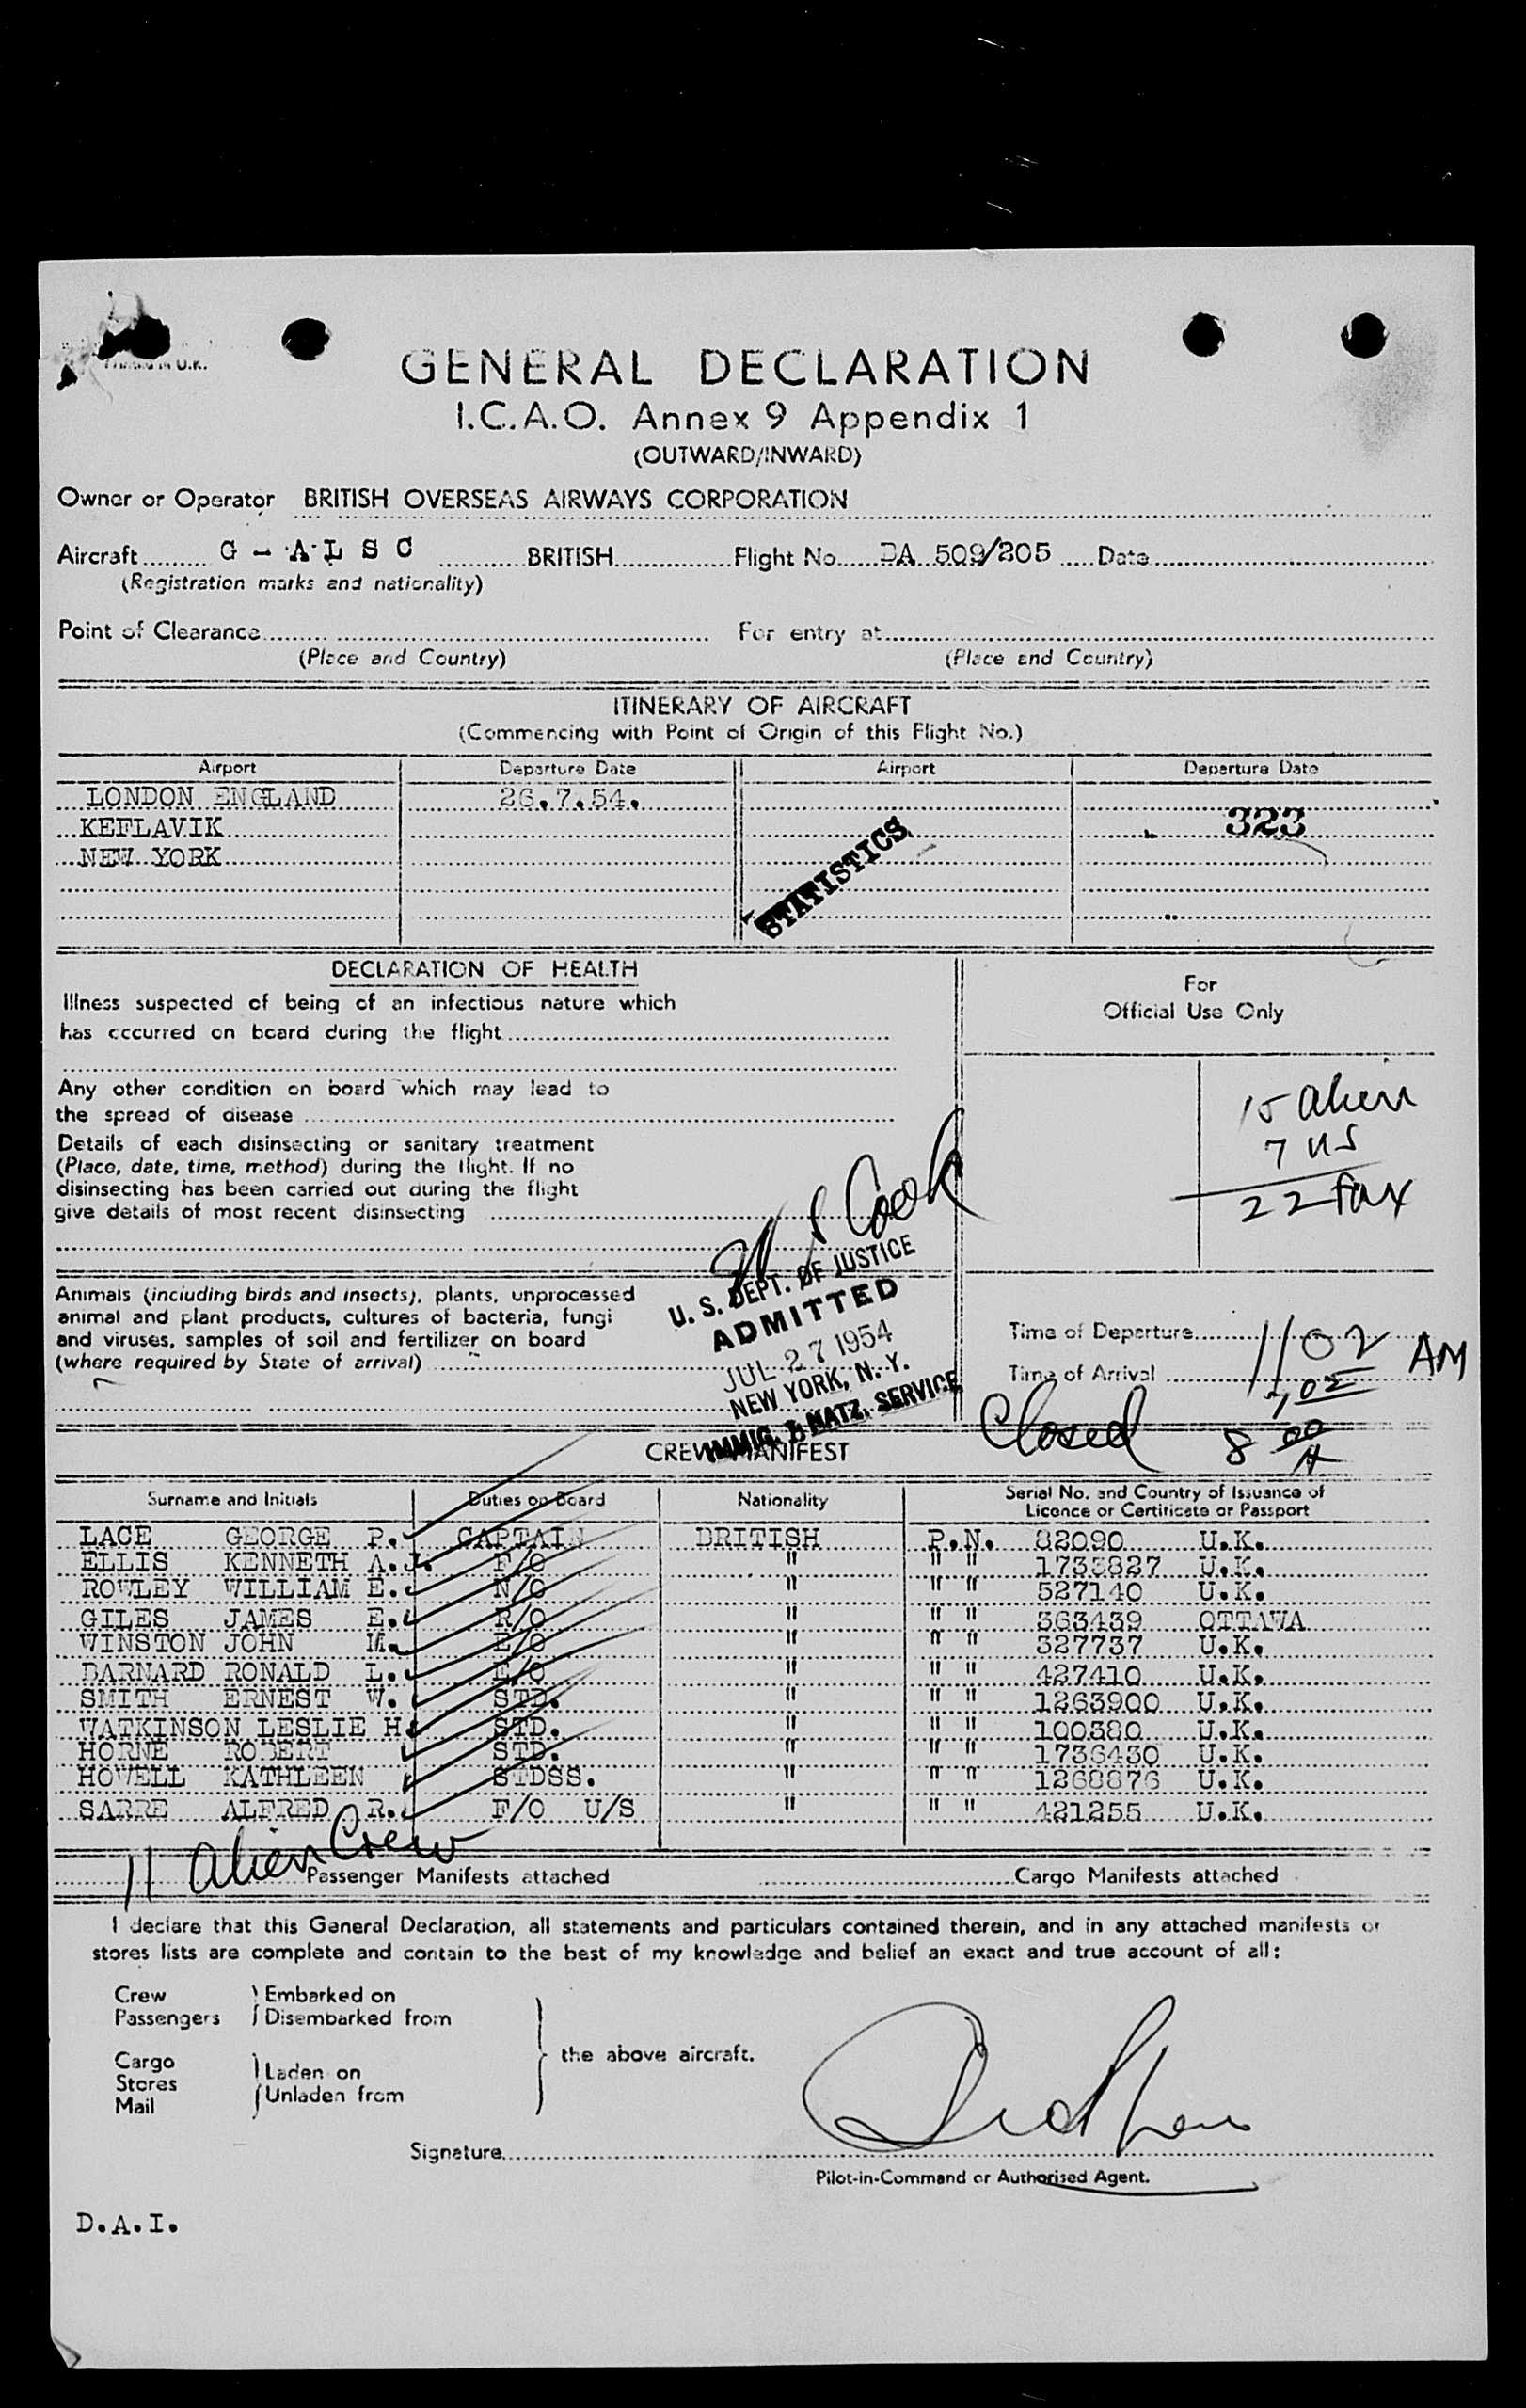 Printed in U.K.
GENERAL DECLARATION
I.C.A.O. Annex 9 Appendix 1
(OUTWARD/INWARD)
Owner or Operator BRITISH OVERSEAS AIRWAYS CORPORATION
Aircraft G - A L S C BRITISH Flight No. BA 509/205 Date
(Registration marks and nationality)
Point of Clearance For entry at
(Place and Country) (Place and Country)
ITINERARY OF AIRCRAFT
(Commencing with Point of Origin of this Flight No.)
Airport Departure Date Airport Departure Date
LONDON ENGLAND 26.7.54.
KEFLAVIK 323
NEW YORK
STATISTICS
DECLARATION OF HEALTH
Illness suspected of being of an infectious nature which
has occurred on board during the flight
Any other condition on board which may lead to
the spread of disease
Details of each disinsecting or sanitary treatment
(Place, date, time, method) during the flight. If no
disinsecting has been carried out during the flight
give details of most recent disinsecting
For
Official Use Only
15 alien
7 US
22 Pax
Cook
U. S. DEPT. OF JUSTICE
ADMITTED
JUL 27 1954
NEW YORK, N. Y.
IMMIG. & NATZ. SERVICE
Animals (including birds and insects), plants, unprocessed
animal and plant products, cultures of bacteria, fungi
and viruses, samples of soil and fertilizer on board
(where required by State of arrival)
Time of Departure 1102 AM
Time of Arrival
Closed 8 00
CREW MANIFEST
Surname and Initials Duties on Board Nationality Serial No. and Country of Issuance of
Licence or Certificate or Passport
LACE GEORGE P. CAPTAIN BRITISH P.N. 82090 U.K.
ELLIS KENNETH A.J. F/O " " " 1733827 U.K.
ROWLEY WILLIAM E. N/O " " " 527140 U.K.
GILES JAMES E. R/O " " " 363439 OTTAWA
WINSTON JOHN M. E/O " " " 327737 U.K.
BARNARD RONALD L. E/O " " " 427410 U.K.
SMITH ERNEST W. STD. " " " 1263900 U.K.
WATKINSON LESLIE H. STD. " " " 100380 U.K.
HORNE ROBERT STD. " " " 1736430 U.K.
HOWELL KATHLEEN STDSS. " " " 1268876 U.K.
SARRE ALFRED R. F/O U/S " " " 421255 U.K.
11 Alien Crew
Passenger Manifests attached Cargo Manifests attached
I declare that this General Declaration, all statements and particulars contained therein, and in any attached manifests or
stores lists are complete and contain to the best of my knowledge and belief an exact and true account of all:
Crew Embarked on
Passengers Disembarked from
the above aircraft.
Cargo
Stores Laden on
Mail Unladen from
Signature
Pilot-in-Command or Authorised Agent.
D.A.I.